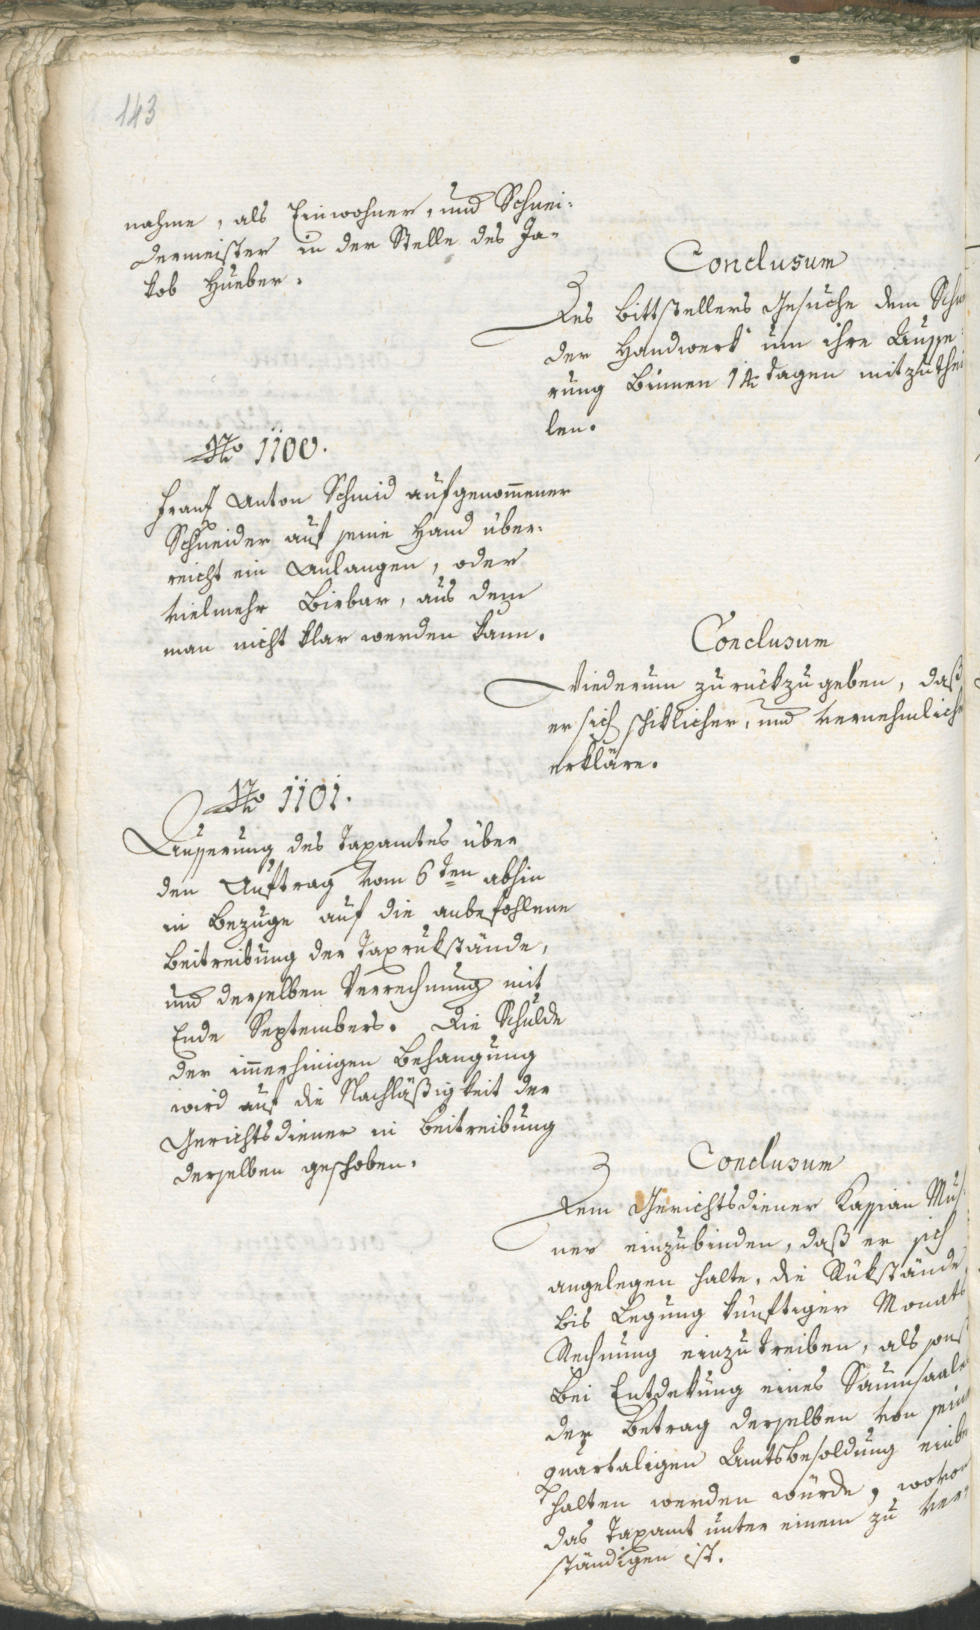 143
nahme, als Einwohner, und Schnei-
dermeister in der Stelle des Ja-
kob Hueber.
Conclusum
Des Bittstellers Gesuche dem Schn
der Handwerk um ihre Äusse-
rung binnen 14 tagen mitzuthei
len.
No 1100.
Franz Anton Schmid aufgenommener
Schneider auf seine Hand über-
reicht ein Anlangen, oder
vielmehr , aus dem
man nicht klar werden kann.
Conclusum
Wiederum zurückzugeben, daß
er sich schiklicher, und vernehmlich
erkläre.
No 1101.
Äusserung des Taxamtes über
den Auftrag vom 6ten abhin
in Bezuge auf die anbefohlene
Beitreibung der Taxrükstände,
und derselben Verrechnung mit
Ende Septembers. Die Schulde
der immerhinigen Behangung
wird auf die Nachläßigkeit der
Gerichtsdiener in Beitreibung
derselben geschoben.
Conclusum
Dem Gerichtsdiener Kassian
ner einzubinden, daß er sich
angelegen halte, die Rükstände
bis Legung künftiger Monats
Rechnung einzutreiben, als sonst
bei Entdekung eines Saumsaales
der Betrag derselben von sein
quartaligen Amtsbesoldung einbe
halten werden würde, wovon
das Taxamt unter einem zu ver-
ständigen ist.